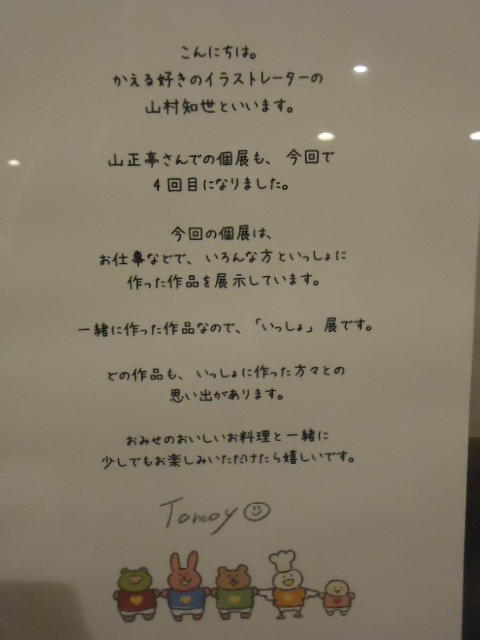 こんにちは。
かえる好きのイラストレーターの
山村知世といいます。
山正亭さんでの個展も、今回で
4回目になりました。
今回の個展は、
お仕事などで、いろんな方といっしょに
作った作品を展示しています。
一緒に作った作品なので、「いっしょ」展です。
どの作品も、いっしょに作った方々との
思い出があります。
おみせのおいしいお料理と一緒に
少しでもお楽しみいただけたら嬉しいです。
Tomoy